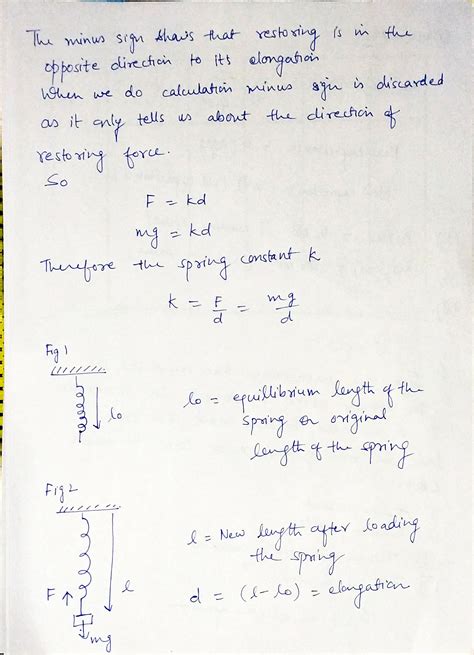 The minus sign shows that restoring is in the
opposite direction to its elongation
When we do calculation minus sign is discarded
as it only tells us about the direction of
restoring force.
So
F = kd
mg = kd
Therefore the spring constant k
k = F/d = mg/d
Fig 1
lo
lo = equillibrium length of the
spring or original
length of the spring
Fig 2
l = New length after loading
the spring
F
l
d = (l - lo) = elongation
mg